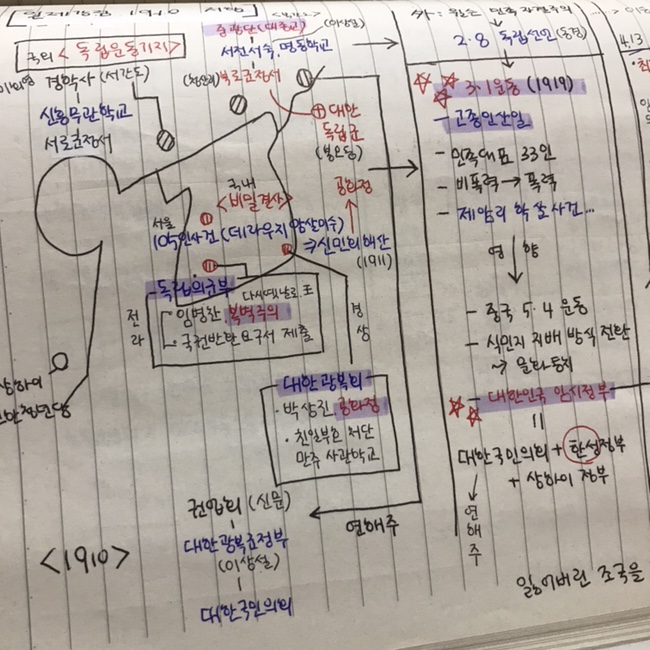 일제강점 1910
국외 <독립운동기지>
중광단 (대종교)
서전서숙, 명동학교
(이상설)
경학사 (서간도)
신흥무관학교
서로군정서
북로군정서
대한
독립군
(봉오동)
국내
<비밀결사>
공화정
서울
105인사건 (데라우치 암살미수)
⇒ 신민회 해산
(1911)
- 독립의군부
전라
다시 옛날로. 王
임병찬 복벽주의
국권반환 요구서 제출
경상
- 대한광복회
· 박상진 공화정
· 친일부호 처단
만주 사관학교
연해주
권업회 (신문)
대한광복군정부
(이상설)
대한국민의회
<1910>
상하이
2·8 독립선언 (동경)
3·1운동 (1919)
- 고종인산일
- 민족대표 33인
- 비폭력 → 폭력
- 제암리 학살사건...
영향
- 중국 5·4 운동
- 식민지 지배 방식 전환
→ 문화통치
- 대한민국 임시정부
=
대한국민의회 + 한성정부
+ 상하이 정부
연해주
잃어버린 조국을
4.13